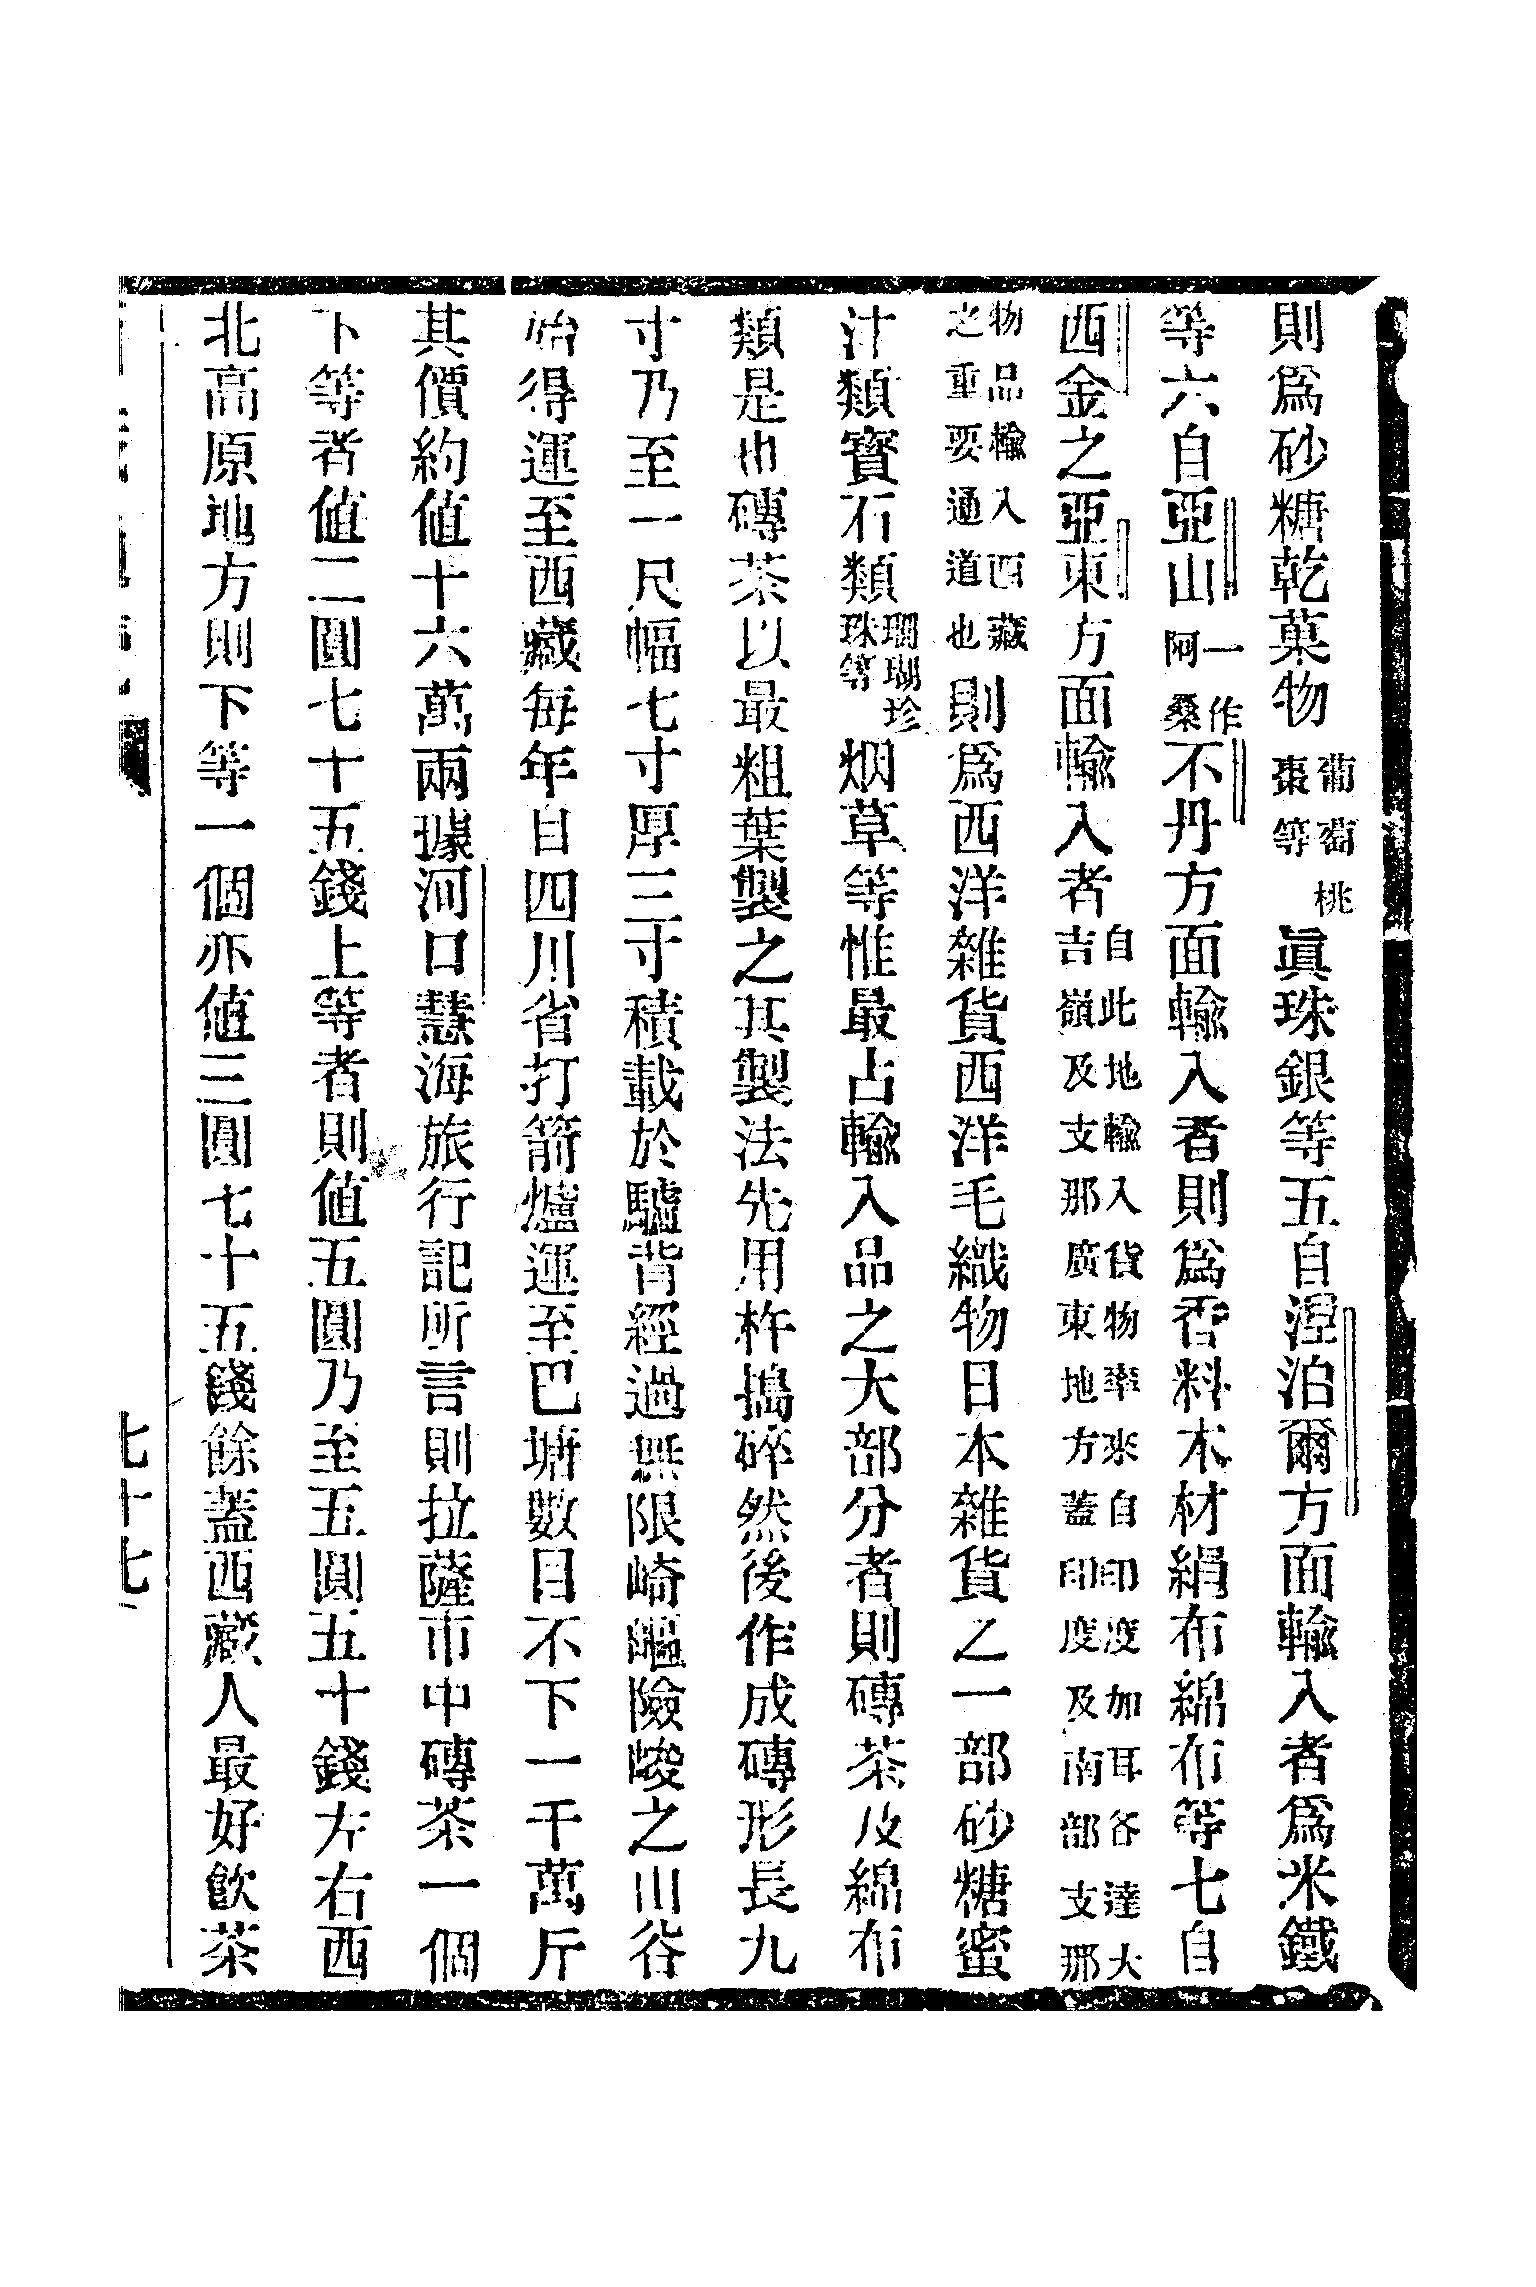 則爲砂糖乾菓物葡萄桃棗等眞珠銀等五自湼泊爾方面輸入者爲米鐵
等六自亞山一作阿桑不丹方面輸入者則爲香料木材絹布綿布等七自
西金之亞東方面輸入者自此地輸入貨物率來自印度加耳谷達大吉嶺及支那廣東地方蓋印度及南部支那
物品輸入西藏之重要通道也則爲西洋雜貨西洋毛織物日本雜貨之一部砂糖蜜
汁類寳石類珊瑚珍珠等烟草等惟最占輸入品之大部分者則磚茶及綿布
類是也磚茶以最粗葉製之其製法先用杵搗碎然後作成磚形長九
寸乃至一尺幅七寸厚三寸積載於驢背經過無限崎嶇險峻之川谷
始得運至西藏每年自四川省打箭爐運至巴塘數目不下一千萬斤
其價約値十六萬兩據河口慧海旅行記所言則拉薩市中磚茶一個
下等者値二圓七十五錢上等者則値五圓乃至五圓五十錢左右西
北高原地方則下等一個亦値三圓七十五錢餘蓋西藏人最好飮茶
七十七